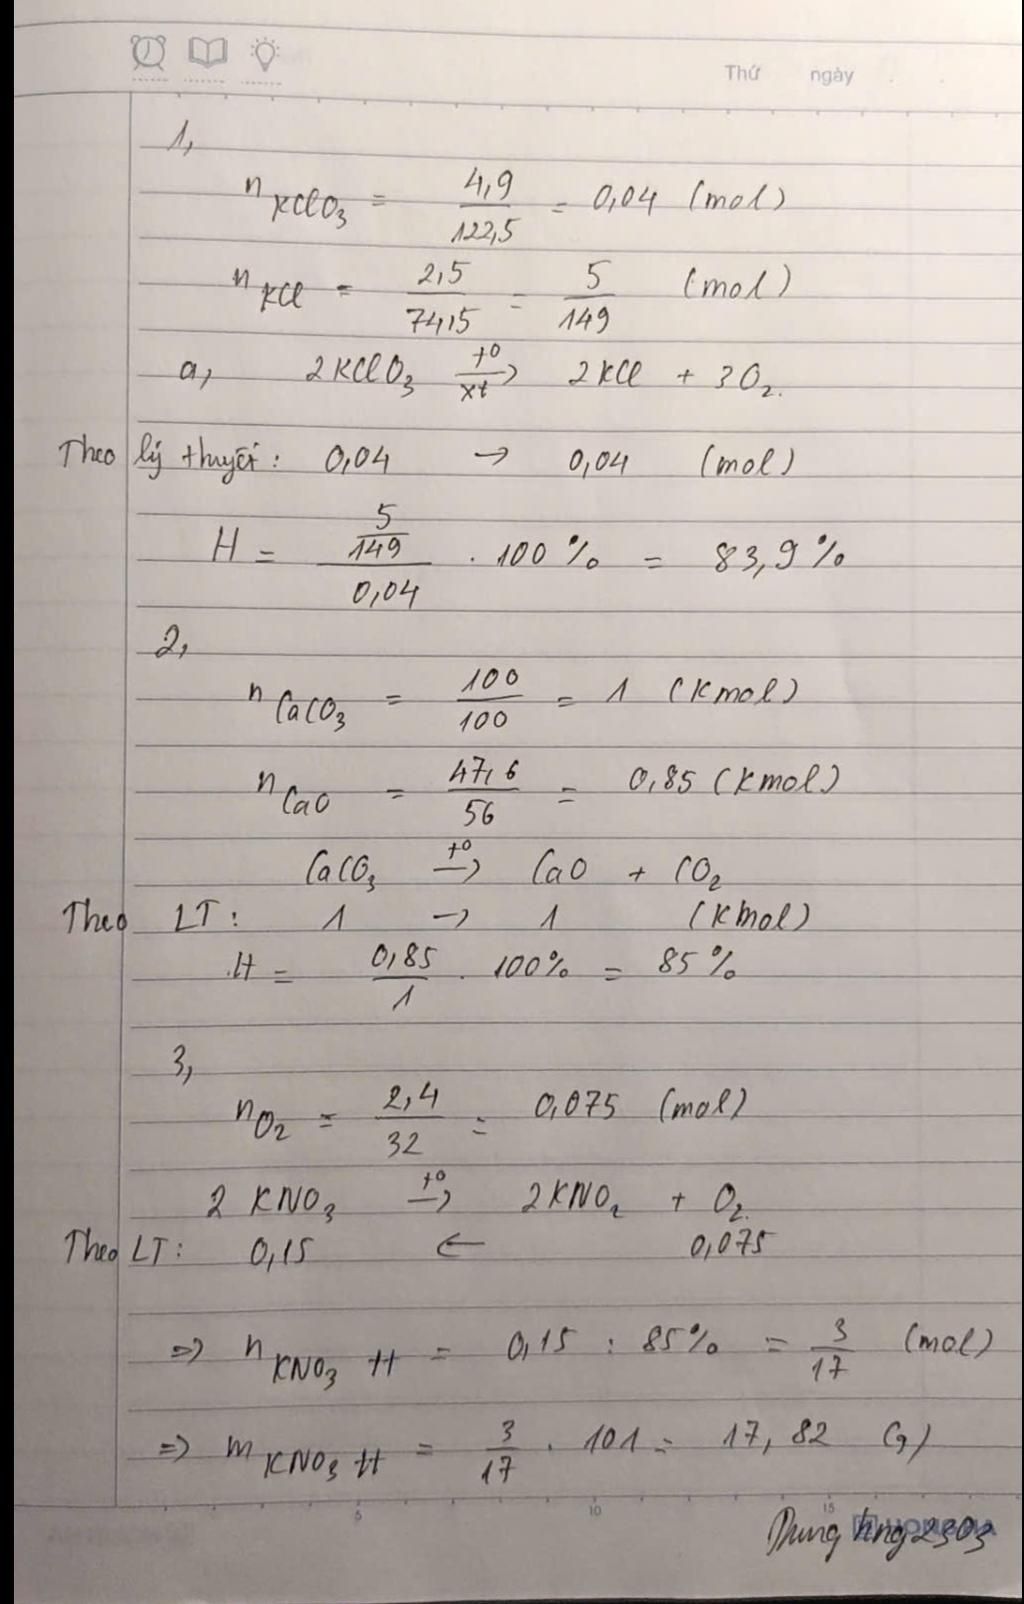 Thứ ngày
1,
n KClO3 = 4,9/122,5 = 0,04 (mol)
n KCl = 2,5/74,5 = 5/149 (mol)
a, 2KClO3 t0/xt → 2KCl + 3O2.
Theo lý thuyết: 0,04 → 0,04 (mol)
H = (5/149)/0,04 . 100% = 83,9%
2,
n CaCO3 = 100/100 = 1 (Kmol)
n CaO = 47,6/56 = 0,85 (Kmol)
CaCO3 t0 → CaO + CO2
Theo LT: 1 → 1 (Kmol)
H = 0,85/1 . 100% = 85%
3,
nO2 = 2,4/32 = 0,075 (mol)
2 KNO3 t0 → 2KNO2 + O2.
Theo LT: 0,15 ← 0,075
=> n KNO3 tt = 0,15 : 85% = 3/17 (mol)
=> m KNO3 tt = 3/17 . 101 = 17,82 (g)
5 10 15